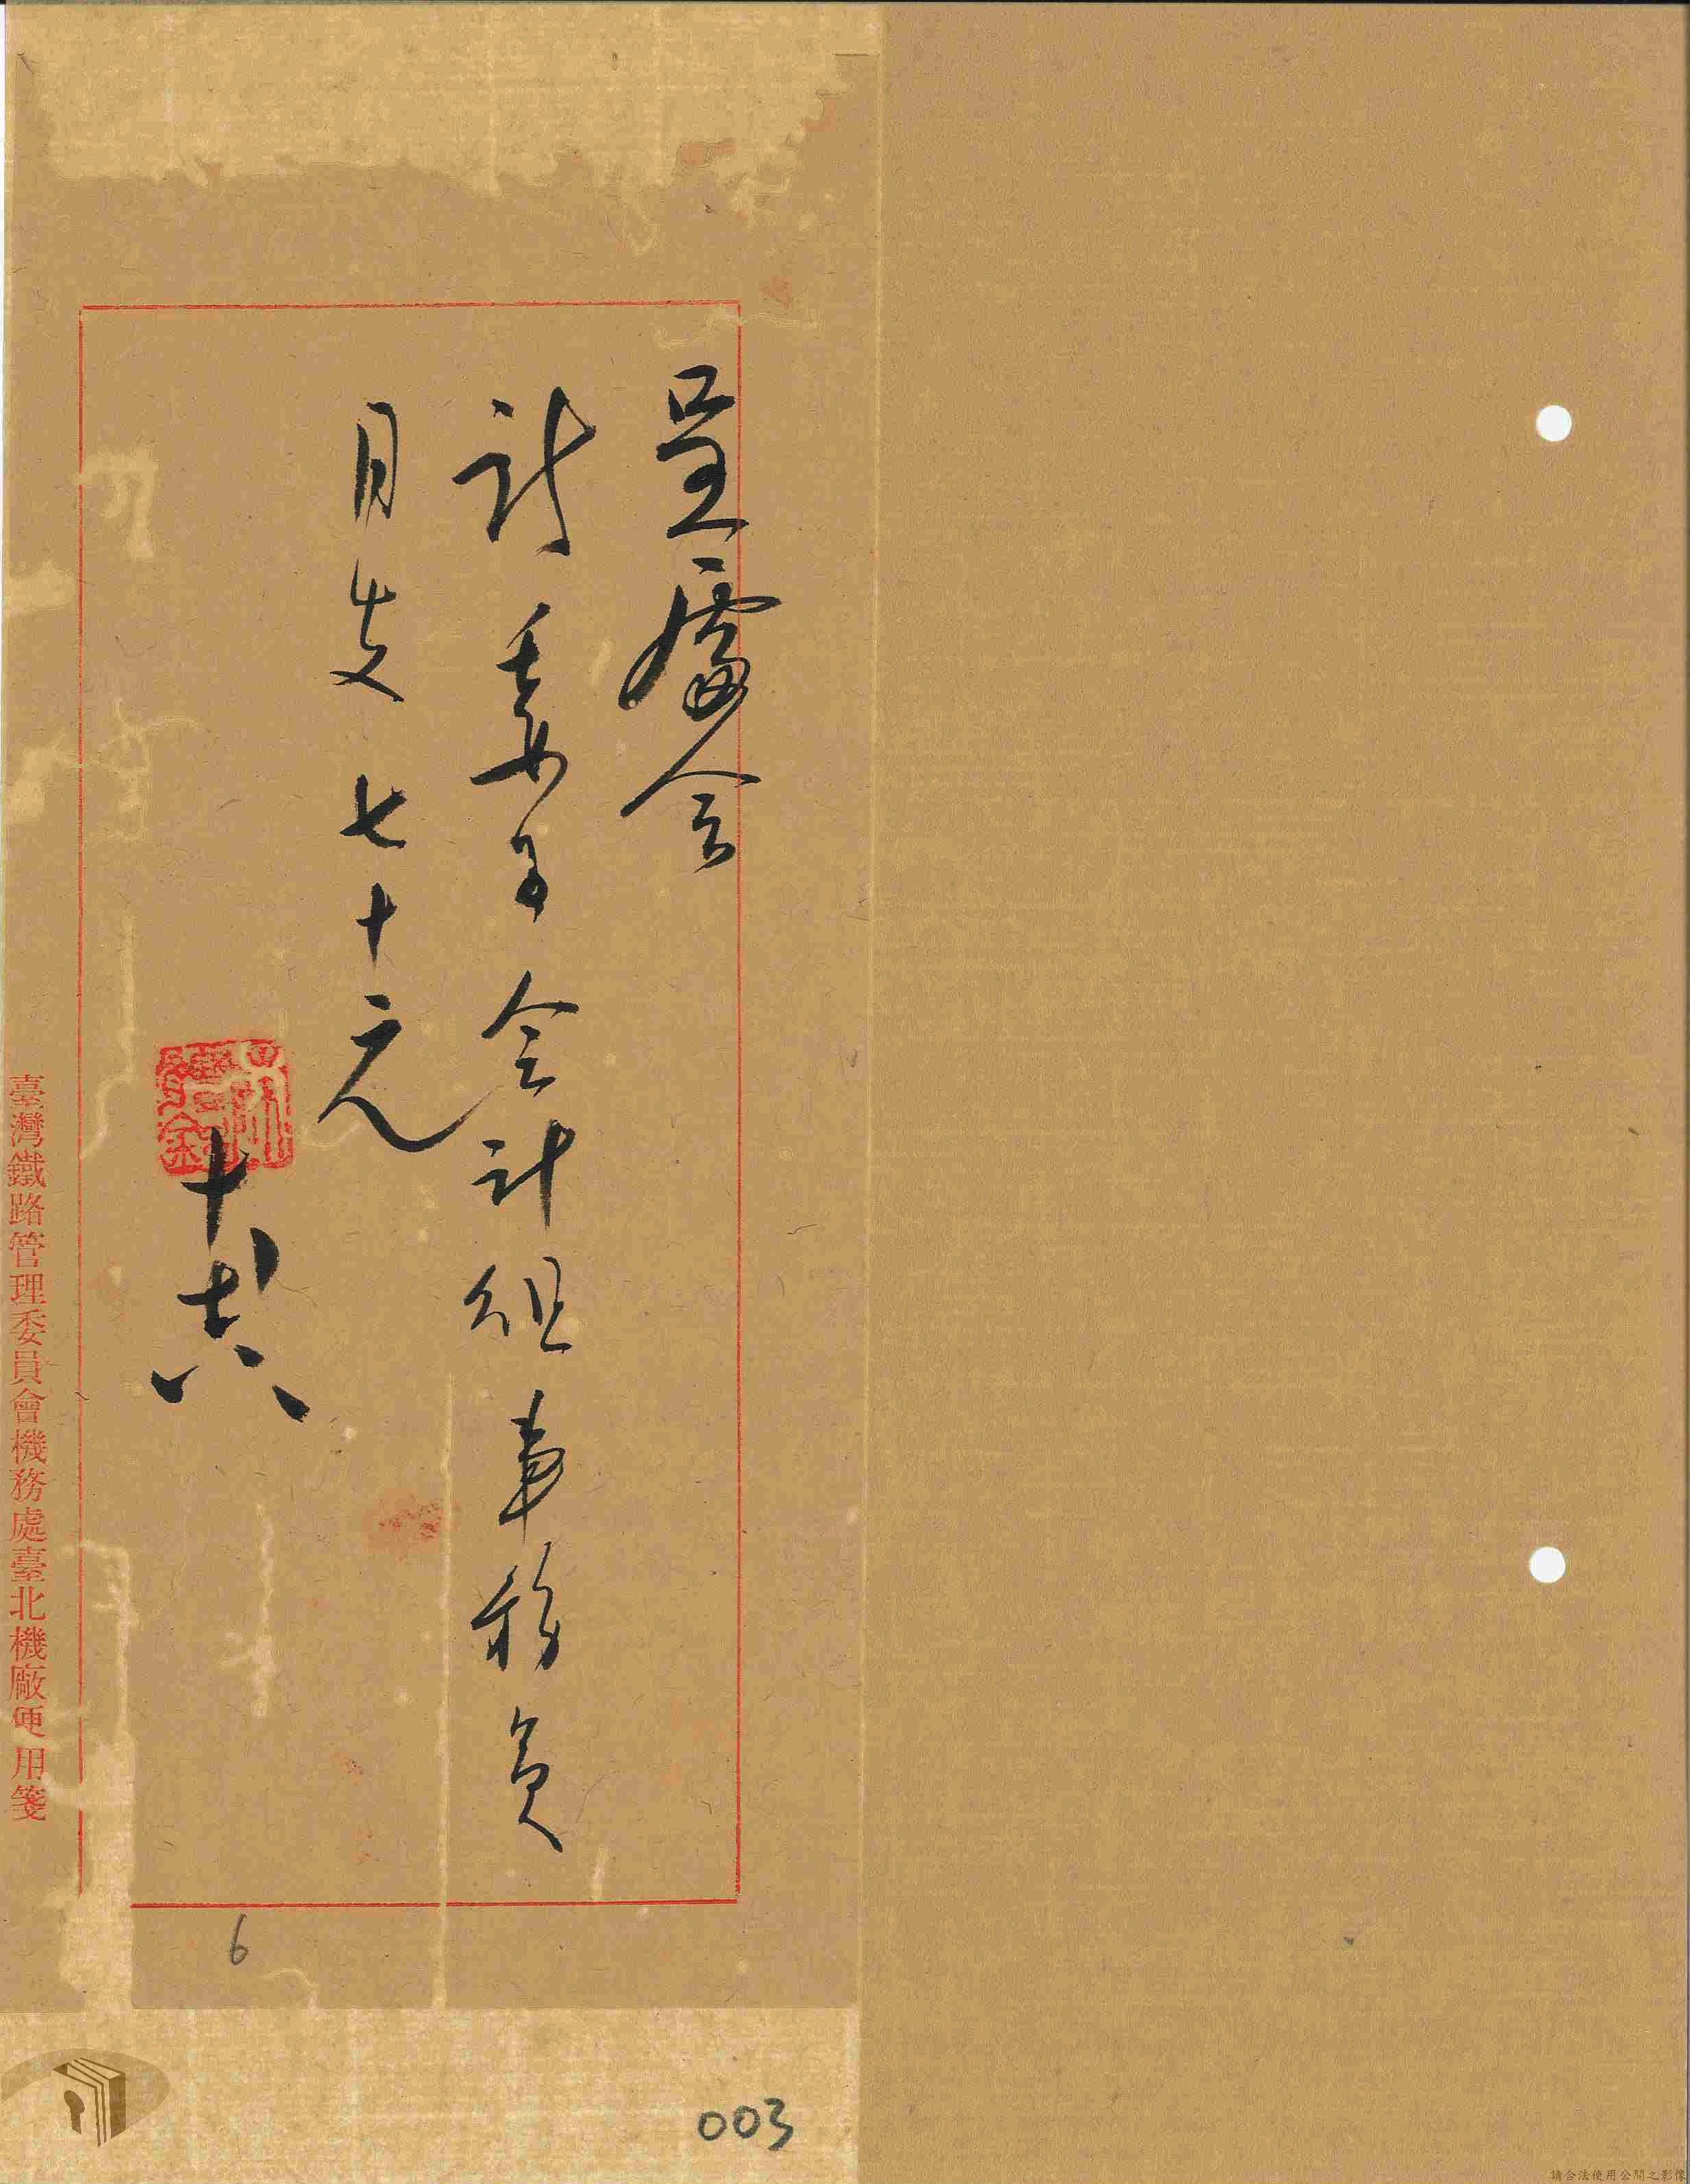 呈處會
請委予会计组事務員
月支七十元
十六
臺灣鐵路管理委員會機務處臺北機廠便用箋
6
003
請合法使用公開之影像